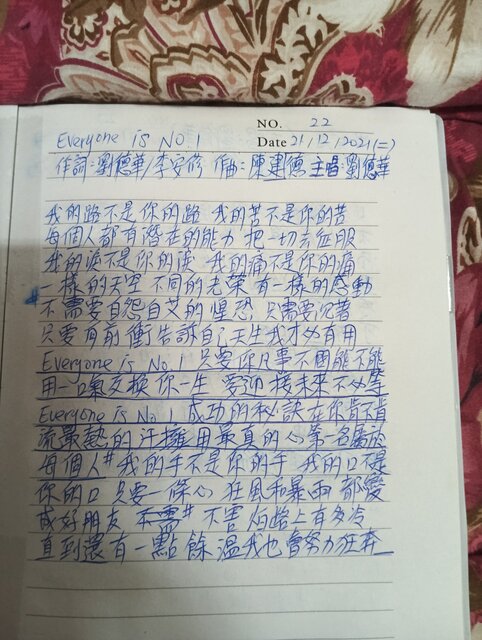 NO. 22
Everyone is No 1
Date 21/12/2021(二)
作詞:劉德華/李安修 作曲:陳建德 主唱 劉德華
我的路不是你的路 我的苦不是你的苦
每個人都有潛在的能力 把一切去征服
我的淚不是你的淚 我的痛不是你的痛
一樣的天空 不同的光榮 有一樣的感動
不需要自怨自艾的惶恐 只需要沉著
只要向前衝告訴自己天生我才必有用
Everyone is No 1 只要你凡事不問能不能
用一口氣交換你一生 要迎接未來不必等
Everyone is No 1 成功的秘訣在你肯不肯
流最熱的汗擁用最真的心第一名屬於
每個人#我的手不是你的手 我的口不是
你的口 只要一條心 狂風和暴雨 都變
成好朋友 不需# 不害怕路上有多冷
直到還有一點餘溫我也會努力狂奔